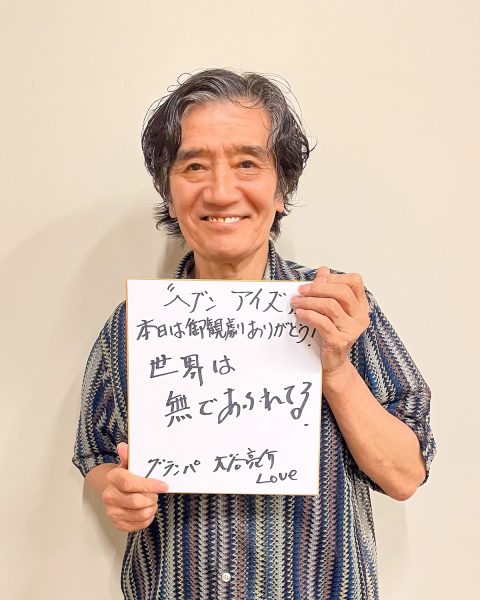 "ヘブン アイズ"
本日は御観劇ありがとう!
世界は
無であふれてる!
グランパ 大谷亮介
Love